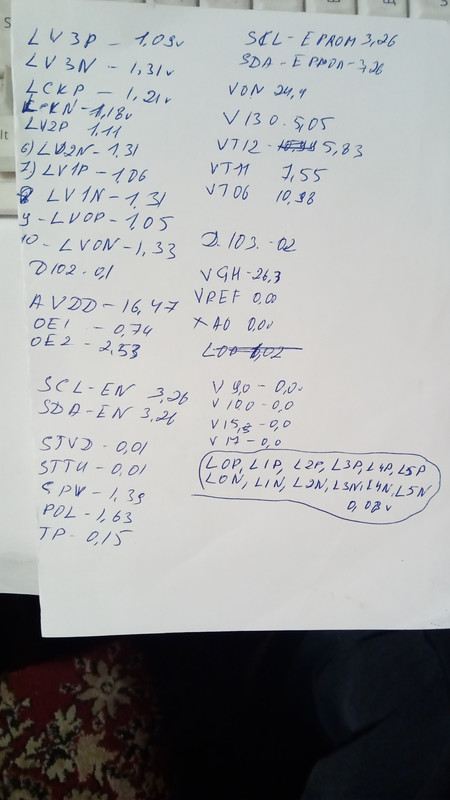 LV3P - 1,09v
LV3N - 1,31v
LCKP - 1,21v
LCKN - 1,18v
LV2P 1,11
6) LV2N - 1,31
7) LV1P - 1,06
8 LV1N - 1,31
9 - LV0P - 1,05
10 - LV0N - 1,33
D102 - 0,1
AVDD - 16,47
OE1 - 0,74
OE2 - 2,53
SCL-EN 3,26
SDA-EN 3,26
STVD - 0,01
STTU - 0,01
CPV - 1,39
POL - 1,63
TP - 0,15
SCL - EPROM 3,26
SDA - EPROM - 3,26
VON 24,4
V130 - 5,05
VT12 - 5,83
VT11 7,55
VT06 10,98
D.103. - 02
VGH - 26,3
VREF 0,00
XAO 0,0v
LOP 1,02
V 9,0 - 0,0v
V 100 - 0,0
V15,8 - 0,0
V 17 - 0,0
L0P, L1P, L2P, L3P, L4P, L5P
L0N, L1N, L2N, L3N, L4N, L5N
0,08 v